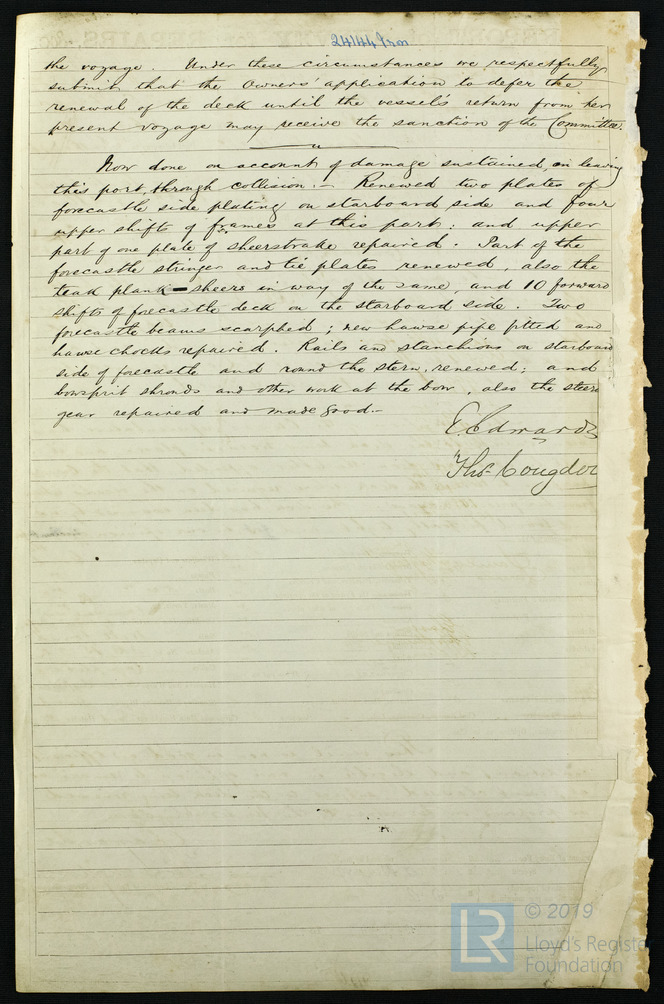 24144 Iron
the voyage. Under these circumstances we respectfully
submit that the Owners' application to defer the
renewal of the deck until the vessel's return from her
present voyage may receive the sanction of the Committee.
Now done on account of damage sustained, on leaving
this port, through collision:- Renewed two plates of
forecastle side plating on starboard side and four
upper shifts of frames at this part; and upper
part of one plate of sheerstrake repaired. Part of the
forecastle stringer and tie plates renewed, also the
teak plank-sheers in way of the same, and 10 forward
shifts of forecastle deck on the starboard side. Two
forecastle beams scarphed; new hawse pipe fitted and
hawse chocks repaired. Rails and stanchions on starboard
side of forecastle and round the stern, renewed; and
bowsprit shrouds and other work at the bow, also the steer
gear repaired and made good.-
E. Edwards
Thos. Congdon
LR
© 2019
Lloyd's Register
Foundation